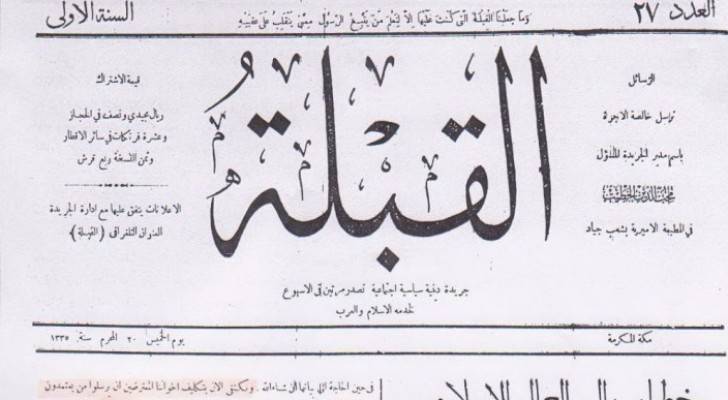 العدد ٢٧
وما جعلنا القبلة التي كنت عليها إلا لنعلم من يتبع الرسول ممن ينقلب على عقبيه
السنة الاولى
الرسائل
ترسل خالصة الاجرة
باسم مدير الجريدة المسؤول
محب الدين الخطيب
في المطبعة الاميرية بشعب جياد
القبلة
جريدة دينية سياسية اجتماعية تصدر مرتين في الاسبوع
لخدمة الاسلام والعرب
قيمة الاشتراك
ريال مجيدي ونصف في الحجاز
وعشرة فرنكات في سائر الاقطار
وثمن النسخة ربع قرش
الاعلانات يتفق عليها مع ادارة الجريدة
العنوان التلغرافي (القبلة)
مكة المكرمة
يوم الخميس ٢٠ المحرم سنة ١٣٣٥
في حين الحاجة
ويمكنني الان بتكليف اخواننا المعترضين ان يرسلوا من يعتمدون